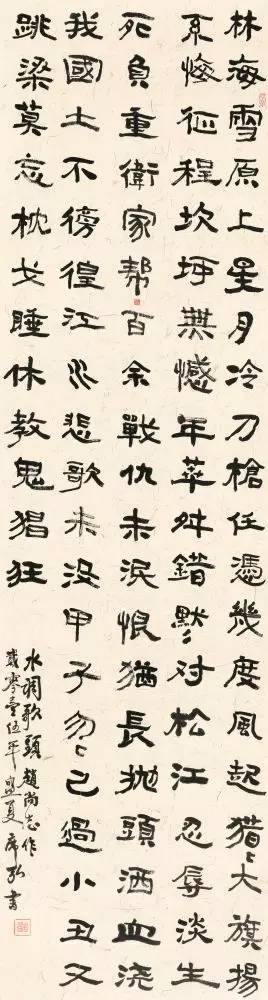 林海雪原上星月冷刀槍任憑幾度風起猎〻大旗揚
悔征程坎坷無憾年華舛錯默〻对松江忍辱淡生
死負重衛家帮百余戰仇未泯恨猶長抛頭洒血浇
我國土不徬徨江水悲歌未没甲子匆〻已過小丑又
跳梁莫忘枕戈睡休教鬼猖狂
水調歌頭趙尚志作
貳零壹伍年孟夏席弘書